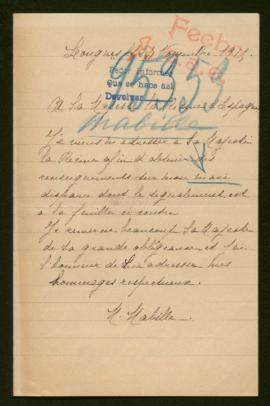 Longues 23 Novembre 1915
Fecho
Pedir informes
Que se hace así
Devolver
A Sa Majesté la Reine d'Espagne
Mabille
Je viens m'adresser à Sa Majesté
la Reine afin d'obtenir des
renseignements sur mon mari
disparu dont le signalement est
à la feuille ci contre
Je remercie beaucoup Sa Majesté
de sa grande obligeance et j'ai
l'honneur de Lui adresser mes
hommages respectueux.
M. Mabille